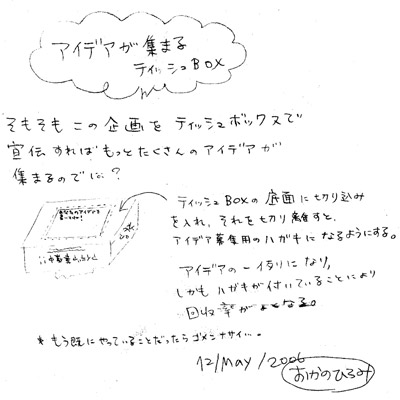 アイデアが集まる
ティッシュBOX
そもそもこの企画をティッシュボックスで
宣伝すればもっとたくさんのアイデアが
集まるのでは?
ティッシュBOXの底面に切り込み
を入れ、それを切り離すと、
アイデア募集用のハガキになるようにする。
アイデアの一例になり、
しかもハガキが付いていることにより
回収率がよくなる。
*もう既にやっていることだったらゴメンナサイ...
12/May/2006
おかのひろみ